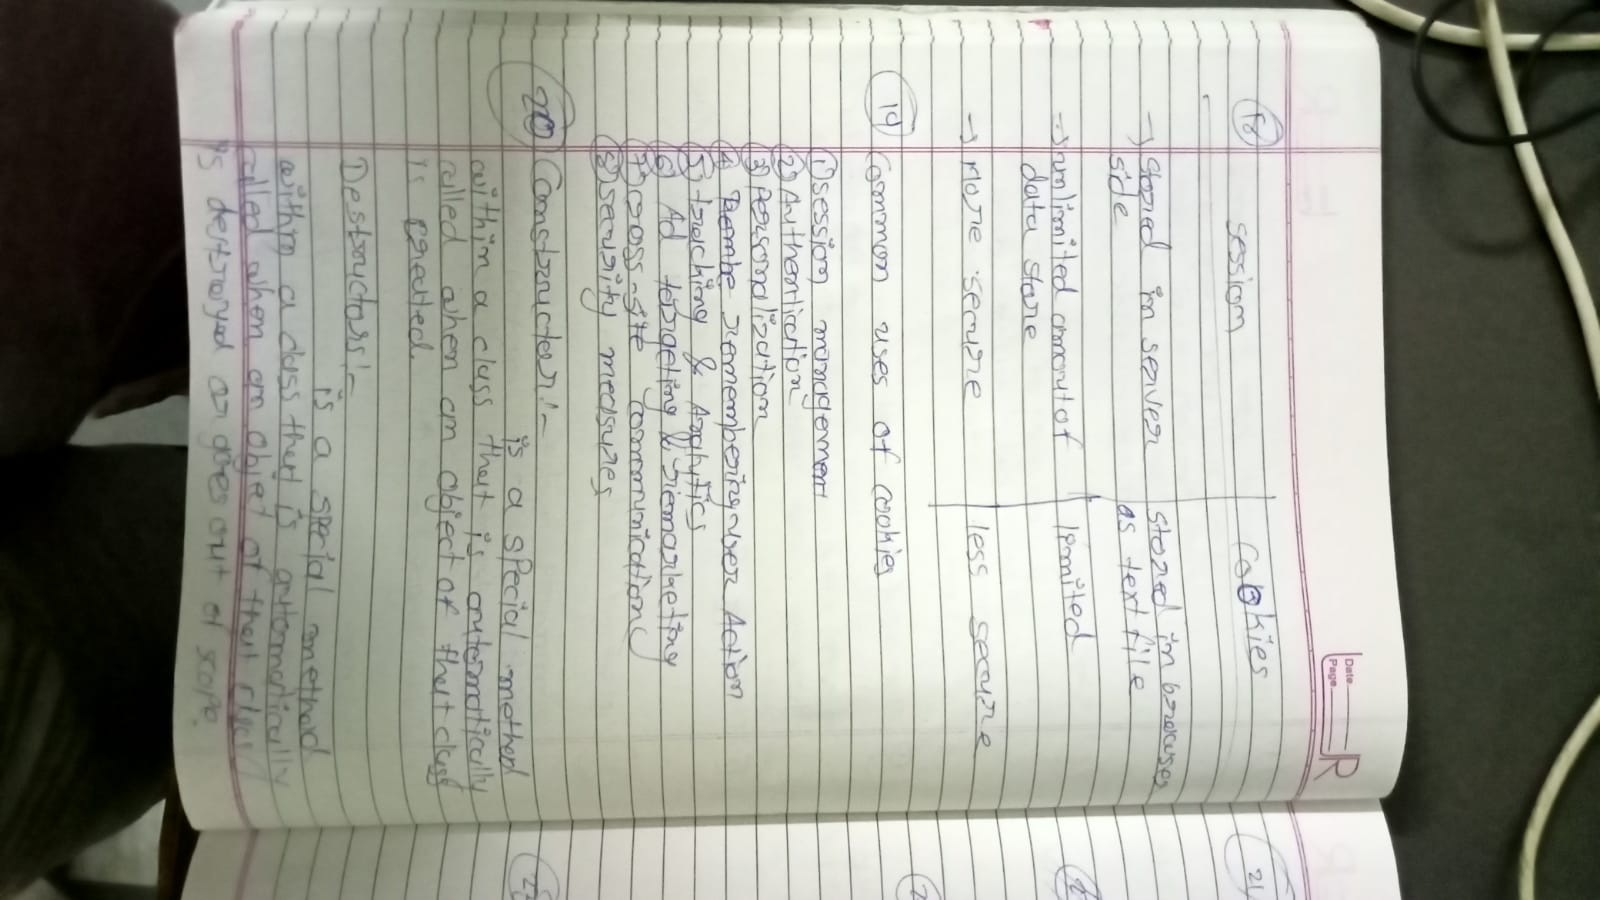 Date
Page
R
18 session cookies
→ stored in server stored in browser
side as text file
→ unlimited amount of limited
data store
→ more secure less secure
19 Common uses of cookies
1) session management
2) Authentication
3) Personalization
4) remembering user Action
5) tracking & Analytics
6) Ad targeting & remarketing
7) cross-site communication
8) security measures
20 Constructor:-
is a special method
within a class that is automatically
called when an object of that class
is created.
Destructors:-
is a special method
within a class that is automatically
called when an object of that class
is destroyed or goes out of scope.
21